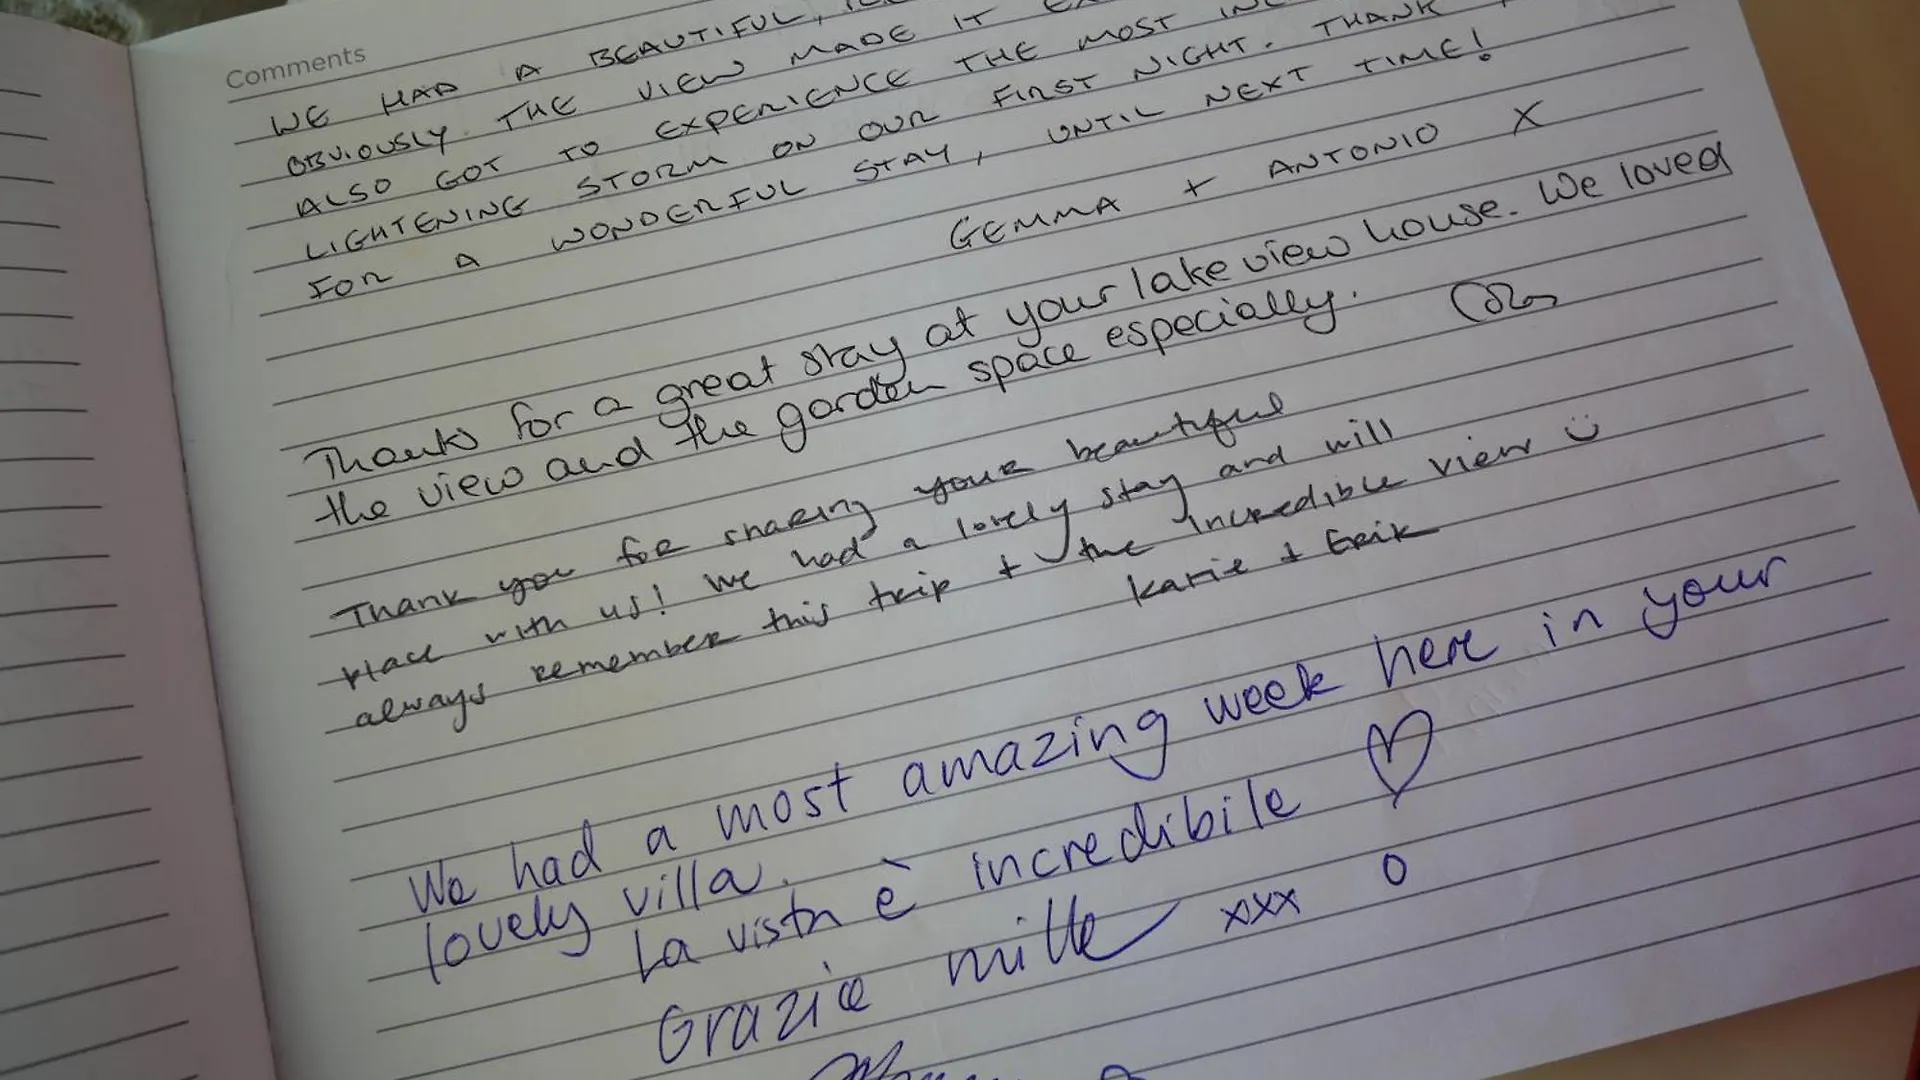 Comments
WE HAD A BEAUTIFUL,
OBVIOUSLY THE VIEW MADE IT
ALSO GOT TO EXPERIENCE THE MOST
LIGHTENING STORM ON OUR FIRST NIGHT. THANK
FOR A WONDERFUL STAY, UNTIL NEXT TIME!
GEMMA + ANTONIO X
Thanks for a great stay at your lake view house. We loved
the view and the garden space especially.
Thank you for sharing your beautiful
place with us! We had a lovely stay and will
always remember this trip + the incredible view
Katie + Erik
We had a most amazing week here in your
lovely villa.
La vista è incredibile ♡
Grazie mille xxx O